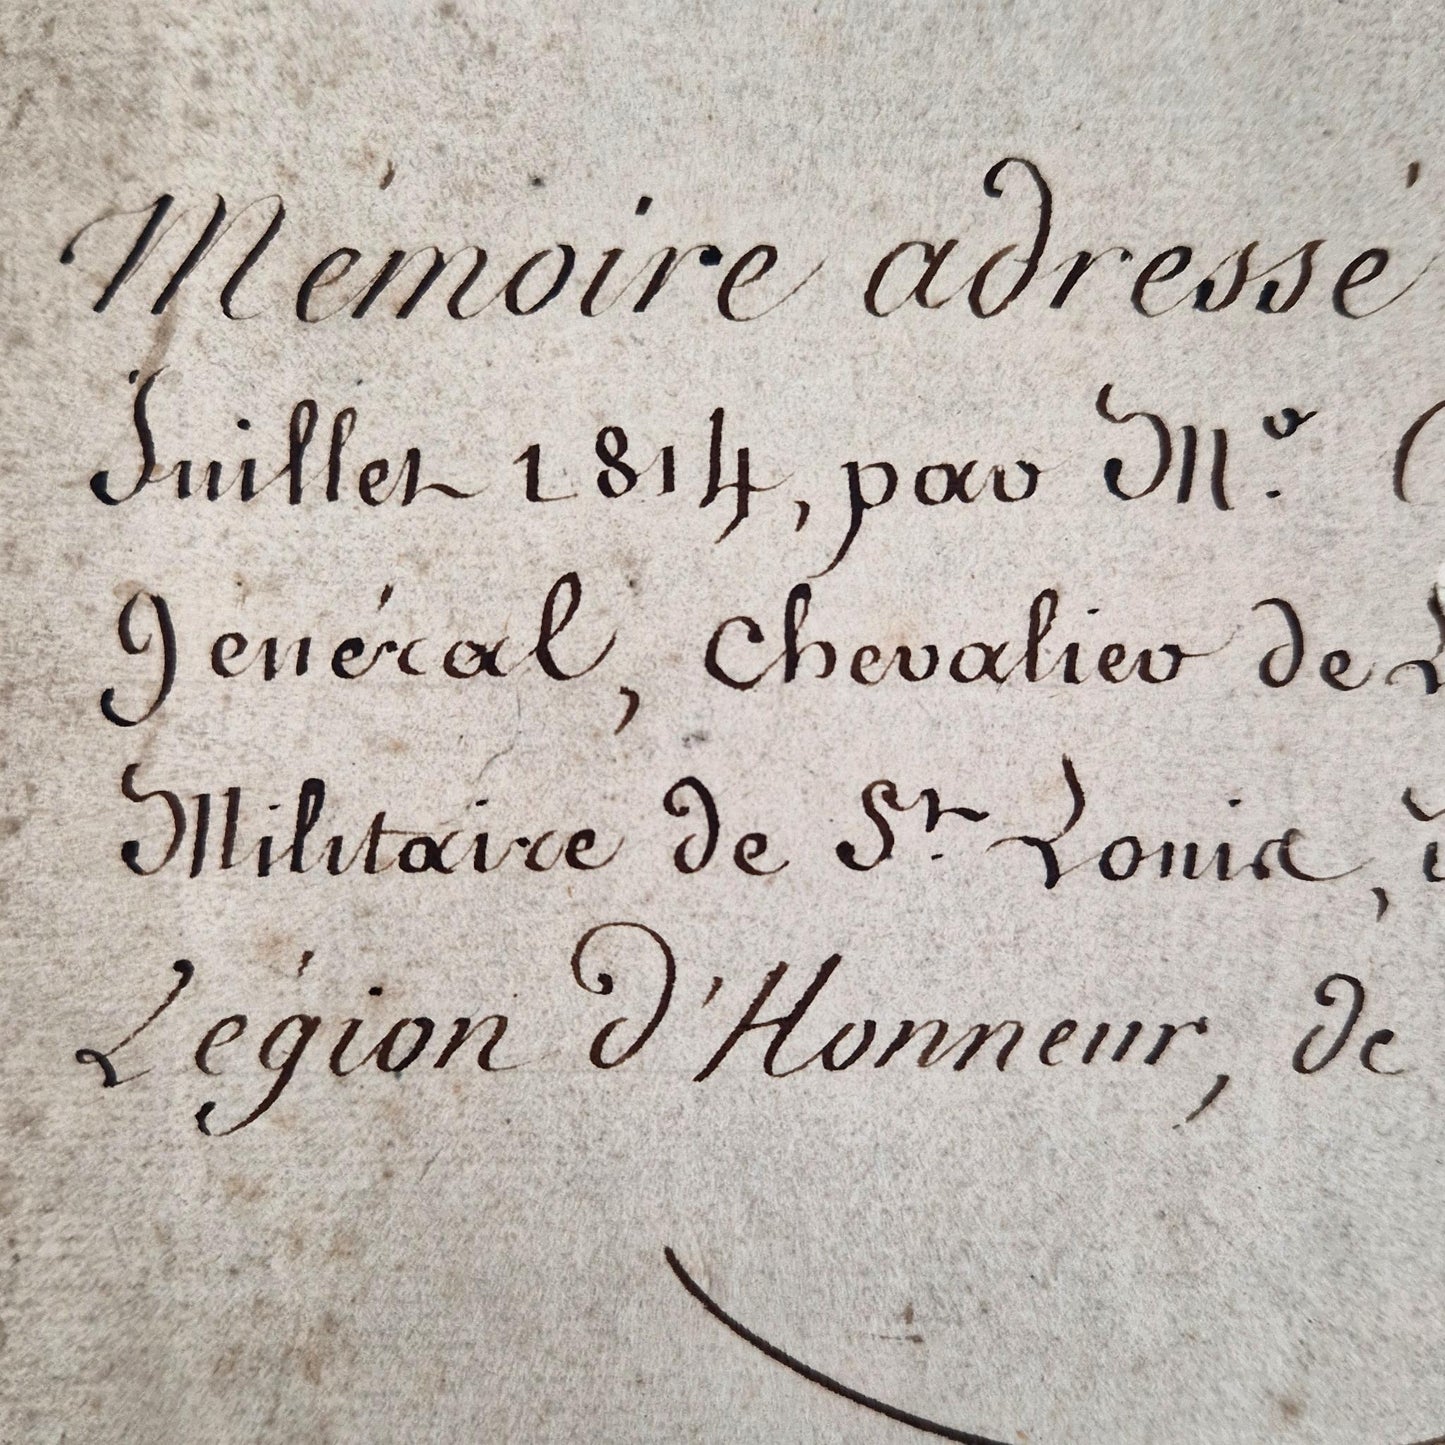 Mémoire adressé
Juillet 1814, par Mr.
général, Chevalier de
Militaire de St. Louis,
Légion d'Honneur, de